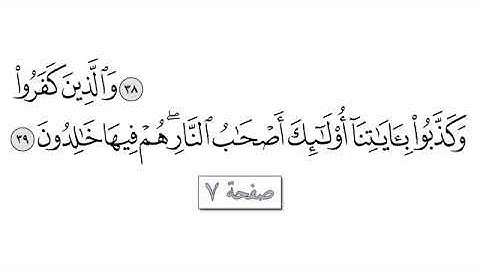 ٣٨ وَٱلَّذِينَ كَفَرُوا۟
وَكَذَّبُوا۟ بِـَٔايَـٰتِنَآ أُو۟لَـٰٓئِكَ أَصْحَـٰبُ ٱلنَّارِ ۖ هُمْ فِيهَا خَـٰلِدُونَ ٣٩
صفحة ٧